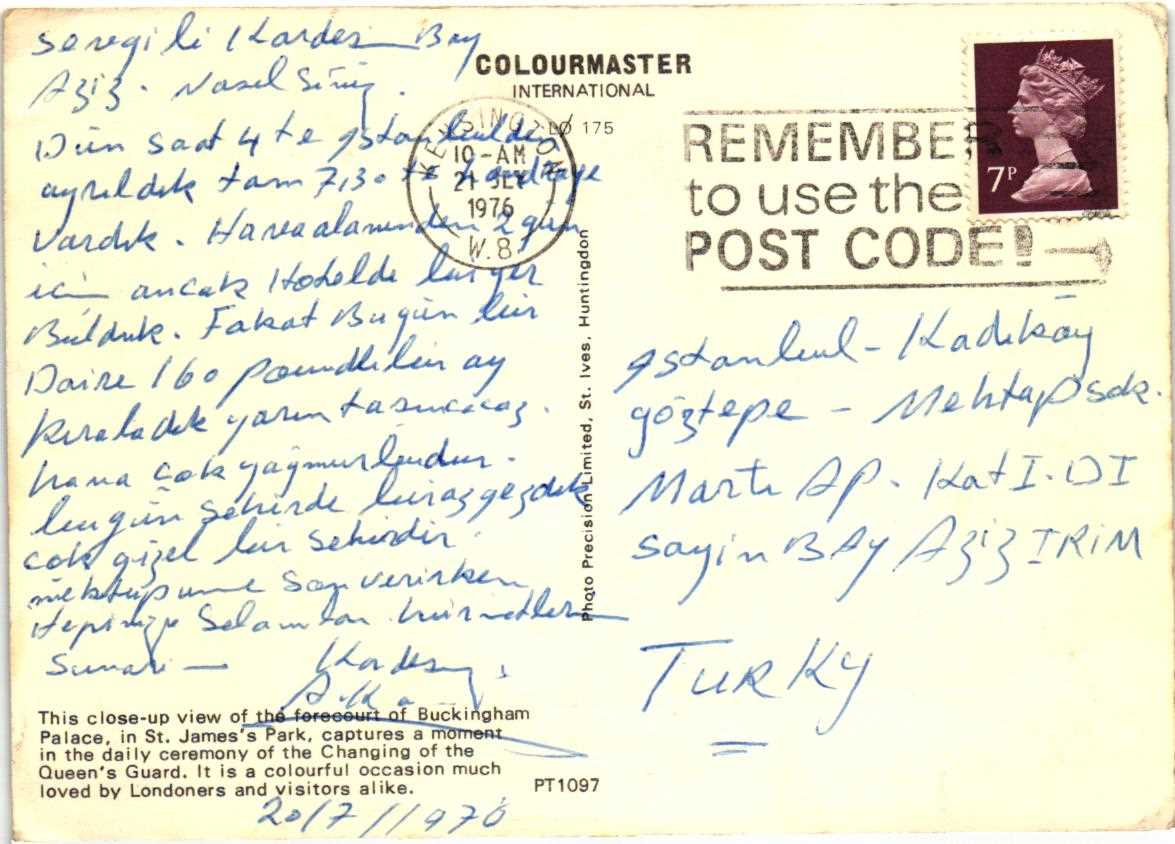 Seregili Kardesim Bay
Aziz. Nasel Siniz.
Dün saat 4 te istanbulda
ayrıldık tam 7,30 te
Vardık. Havaalanından 2 gün
için ancak Hotelde bir yer
Bulduk. Fakat Bugün bir
Daire 160 poundlibir ay
kıraladık yarın tasınıcaz.
hava çok yağmurludur.
bugün Şehirde biraz gezdik
çok güzel bir sehirdir.
mektupuma son verirken
Hepinize Selamlar hürmetler
Sunarım Kardesiniz
COLOURMASTER
INTERNATIONAL
LØ 175
KENSINGTON
10-AM
21 JLY
1976
W.8.
REMEMBER
to use the
POST CODE!
7P
Photo Precision Limited, St. Ives, Huntingdon
istanbul - Kadıköy
göztepe - Mehtap sok.
Martı AP. Kat I. DI
Sayin BAY AZiZ IRIM
TURKY
This close-up view of the forecourt of Buckingham
Palace, in St. James's Park, captures a moment
in the daily ceremony of the Changing of the
Queen's Guard. It is a colourful occasion much
loved by Londoners and visitors alike.
PT1097
20/7/1976